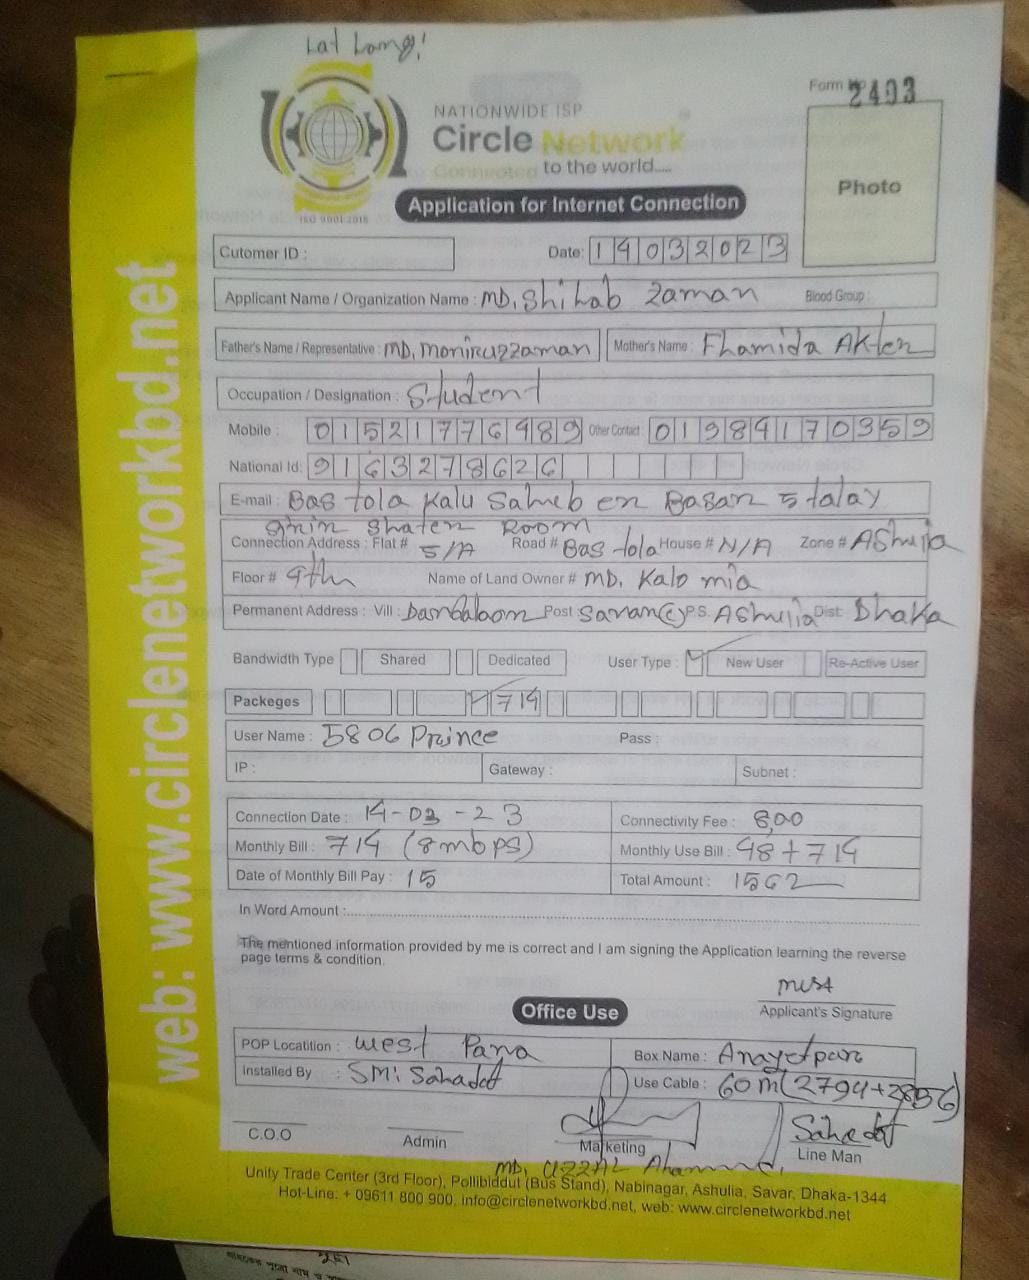 Lat Long!
Form No 2403
NATIONWIDE ISP
Circle Network
Connected to the world.....
ISO 9001:2015
Photo
Application for Internet Connection
Cutomer ID :
Date: 14032023
Applicant Name / Organization Name : MD. Shihab Zaman Blood Group :
Father's Name / Representative : MD. Moniruzzaman Mother's Name : Fhamida Akter
Occupation / Designation : Student
Mobile : 01521776489 Other Contact : 01984170359
National Id: 9163278626
E-mail : Bas tola Kalu Saheb er Basar 5 talay
grin Shater Room
Connection Address : Flat # 5/A Road # Bas tola House # N/A Zone # AShulia
Floor # 4th Name of Land Owner # MD. Kalo mia
Permanent Address : Vill : Post Savar(c) P.S. AShulia Dist: Dhaka
Bandwidth Type Shared Dedicated User Type : New User Re-Active User
Packeges 714
User Name : 5806 Prince Pass :
IP : Gateway : Subnet :
Connection Date : 14-03-23 Connectivity Fee : 800
Monthly Bill : 714 (8mbps) Monthly Use Bill : 48+714
Date of Monthly Bill Pay : 15 Total Amount : 1562
In Word Amount :
The mentioned information provided by me is correct and I am signing the Application learning the reverse
page terms & condition.
Applicant's Signature
Office Use
POP Locatition : West Para Box Name : Anayetpur
Installed By : SM: Sahadat Use Cable : 60m(2794+2856)
C.O.O Admin Marketing Sahadat
Line Man
MD. UZZAL Ahammed.
Unity Trade Center (3rd Floor), Pollibiddut (Bus Stand), Nabinagar, Ashulia, Savar, Dhaka-1344
Hot-Line: + 09611 800 900, info@circlenetworkbd.net, web: www.circlenetworkbd.net
web: www.circlenetworkbd.net